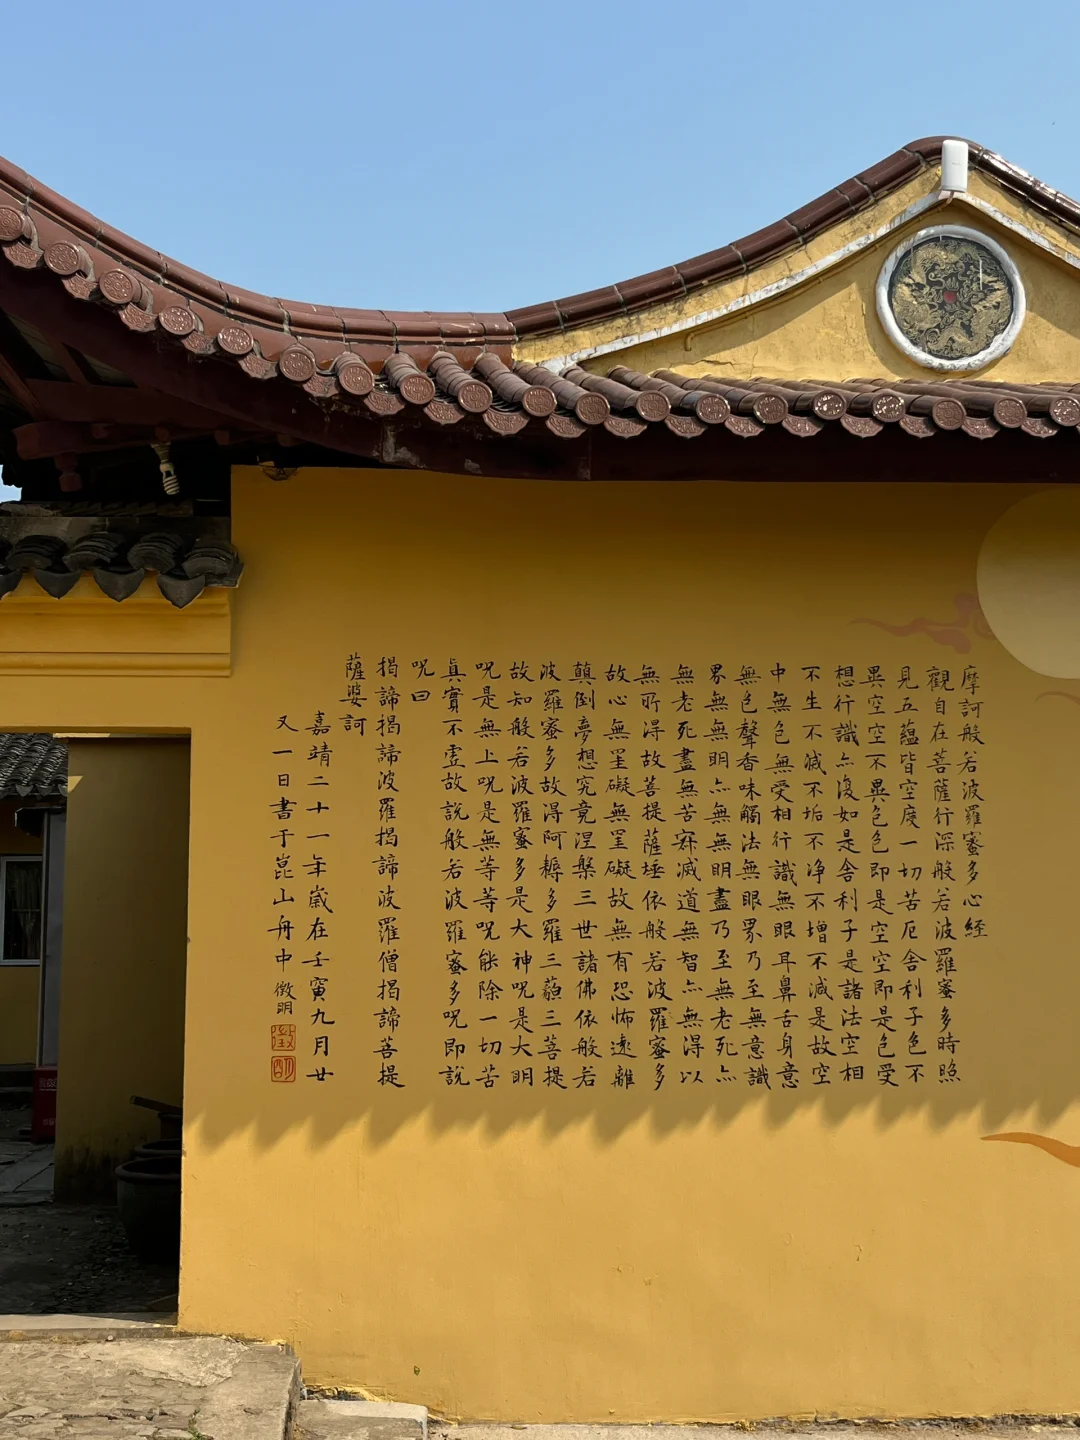 摩訶般若波羅蜜多心經
觀自在菩薩行深般若波羅蜜多時照
見五蘊皆空度一切苦厄舎利子色不
異空空不異色色即是空空即是色受
想行識亦復如是舎利子是諸法空相
不生不滅不垢不净不增不減是故空
中無色無受相行識無眼耳鼻舌身意
無色聲香味觸法無眼界乃至無意識
界無無明亦無無明盡乃至無老死亦
無老死盡無苦寂滅道無智亦無得以
無所得故菩提薩埵依般若波羅蜜多
故心無罣礙無罣礙故無有恐怖遠離
顛倒夢想究竟涅槃三世諸佛依般若
波羅蜜多故得阿耨多羅三藐三菩提
故知般若波羅蜜多是大神呪是大明
呪是無上呪是無等等呪能除一切苦
真實不虛故說般若波羅蜜多呪即說
呪曰
揭諦揭諦波羅揭諦波羅僧揭諦菩提
薩婆訶
嘉靖二十一年歲在壬寅九月廿
又一日書于崑山舟中 徵明
徵
明